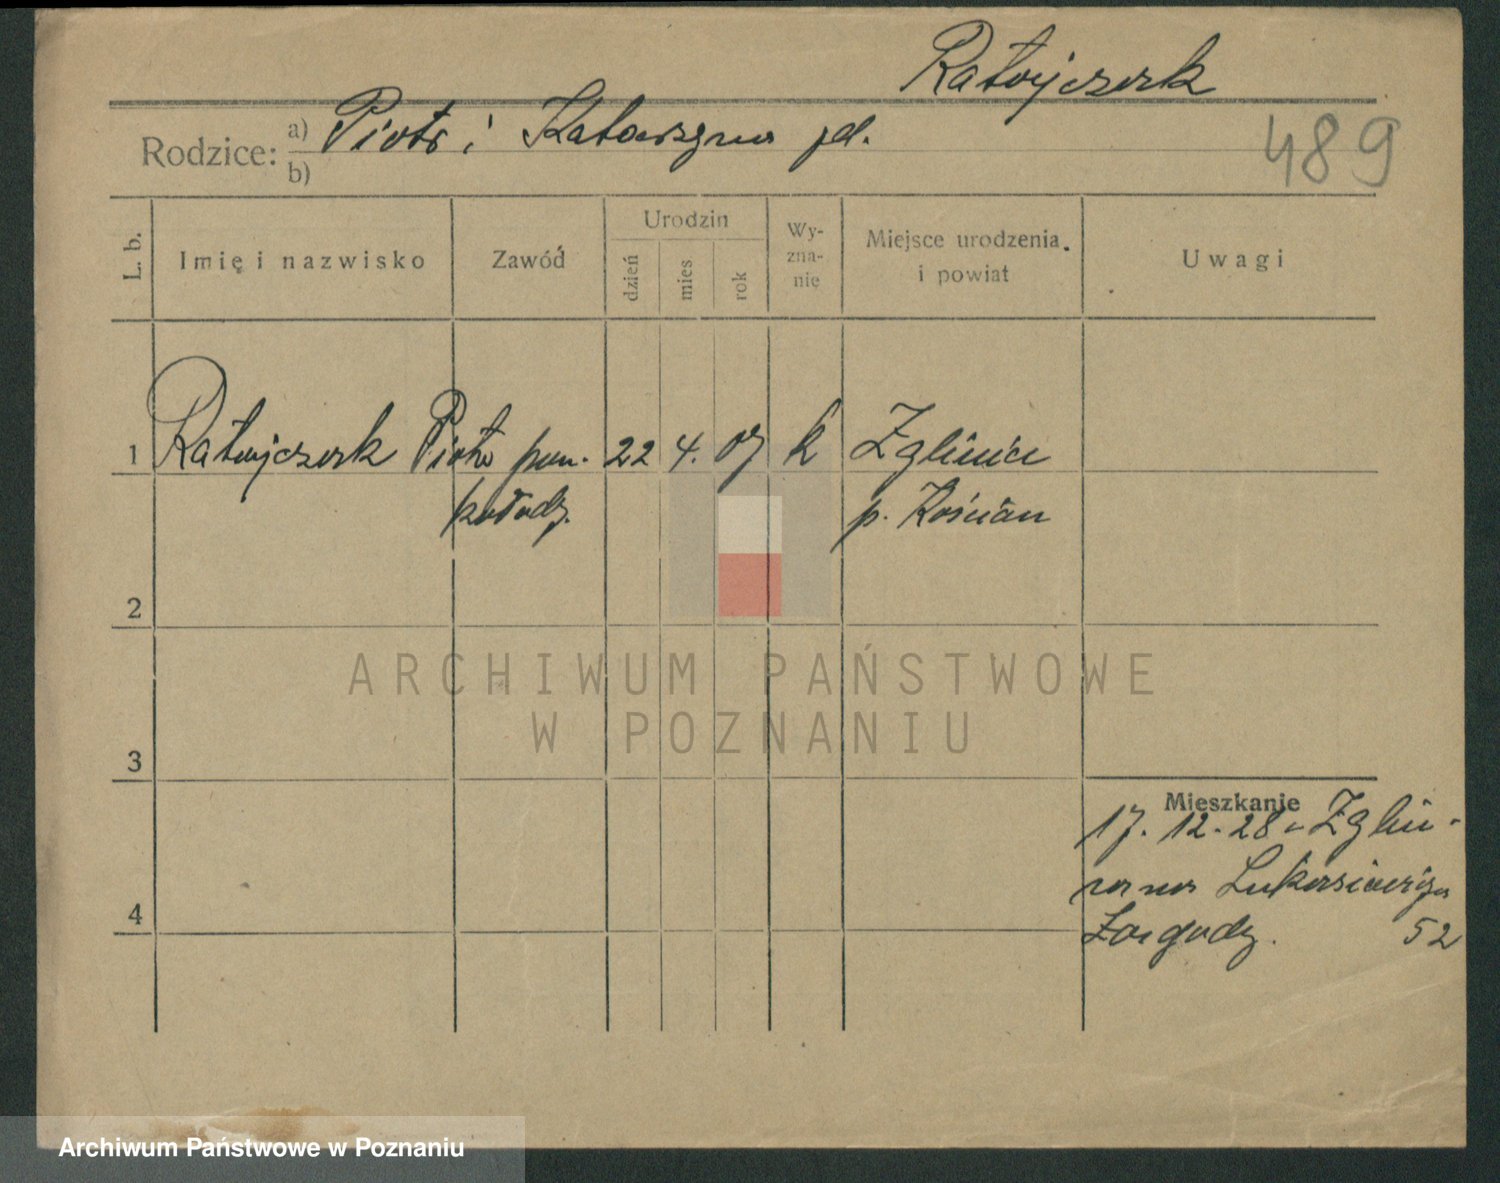 Ratajczak
Rodzice: a) Piotr i Katarzyna
b)
489
L. b.
Imię i nazwisko
Zawód
Urodzin
dzień
mies
rok
Wy-
zna-
nie
Miejsce urodzenia
i powiat
Uwagi
1 Ratajczak Piotr pom. 22 4. 07 k Zglinice
kołodz. p. Kościan
2
ARCHIWUM PAŃSTWOWE
W POZNANIU
3
Mieszkanie
17. 12. 28 Zglin-
Łukasiewicza
52
4
Archiwum Państwowe w Poznaniu